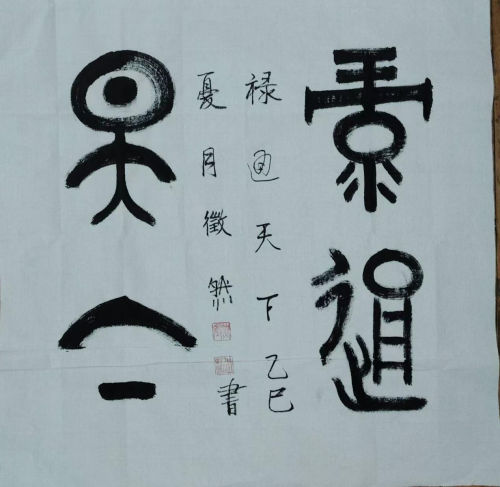 素道
天下
禄通天下乙巳
夏月徵然書